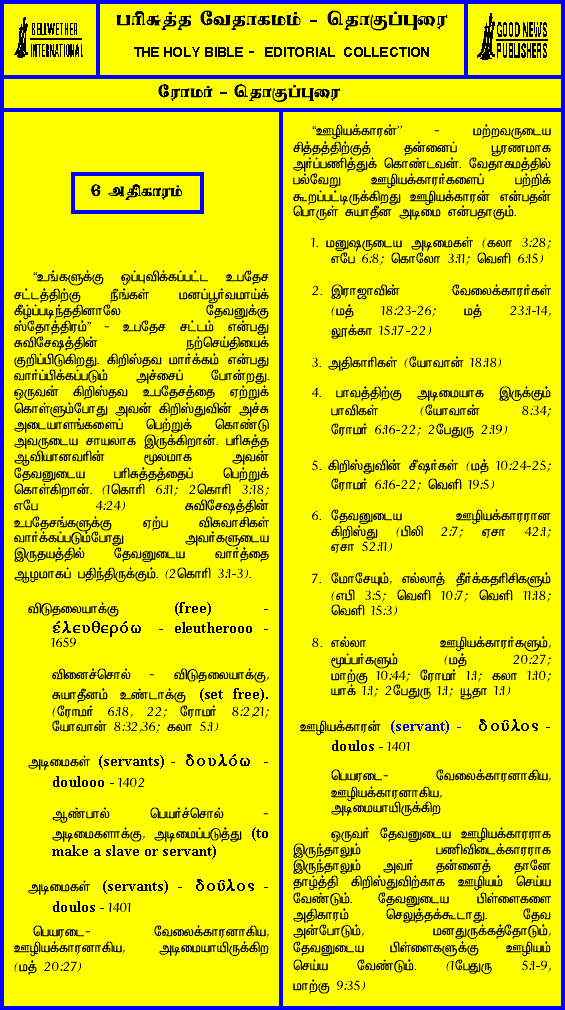 BELLWETHER
INTERNATIONAL
பரிசுத்த வேதாகமம் - தொகுப்புரை
THE HOLY BIBLE - EDITORIAL COLLECTION
GOOD NEWS
PUBLISHERS
ரோமர் - தொகுப்புரை
6 அதிகாரம்
“உங்களுக்கு ஒப்புவிக்கப்பட்ட உபதேச
சட்டத்திற்கு நீங்கள் மனப்பூர்வமாய்க்
கீழ்ப்படிந்ததினாலே தேவனுக்கு
ஸ்தோத்திரம்” - உபதேச சட்டம் என்பது
சுவிசேஷத்தின் நற்செய்தியைக்
குறிப்பிடுகிறது. கிறிஸ்தவ மார்க்கம் என்பது
வார்ப்பிக்கப்படும் அச்சைப் போன்றது.
ஒருவன் கிறிஸ்தவ உபதேசத்தை ஏற்றுக்
கொள்ளும்போது அவன் கிறிஸ்துவின் அச்சு
அடையாளங்களைப் பெற்றுக் கொண்டு
அவருடைய சாயலாக இருக்கிறான். பரிசுத்த
ஆவியானவரின் மூலமாக அவன்
தேவனுடைய பரிசுத்தத்தைப் பெற்றுக்
கொள்கிறான். (1கொரி 6:11; 2கொரி 3:18;
எபே 4:24) சுவிசேஷத்தின்
உபதேசங்களுக்கு ஏற்ப விசுவாசிகள்
வார்க்கப்படும்போது அவர்களுடைய
இருதயத்தில் தேவனுடைய வார்த்தை
ஆழமாகப் பதிந்திருக்கும். (2கொரி 3:1-3).
விடுதலையாக்கு (free) -
έλευθερόω - eleutherooo -
1659
வினைச்சொல் - விடுதலையாக்கு,
சுயாதீனம் உண்டாக்கு (set free).
(ரோமர் 6:18, 22; ரோமர் 8:2,21;
யோவான் 8:32,36; கலா 5:1)
அடிமைகள் (servants) - δουλόω -
doulooo - 1402
ஆண்பால் பெயர்ச்சொல் -
அடிமைகளாக்கு, அடிமைப்படுத்து (to
make a slave or servant)
அடிமைகள் (servants) - δοῦλος -
doulos - 1401
பெயரடை- வேலைக்காரனாகிய,
ஊழியக்காரனாகிய, அடிமையாயிருக்கிற
(மத் 20:27)
“ஊழியக்காரன்” - மற்றவருடைய
சித்தத்திற்குத் தன்னைப் பூரணமாக
அர்ப்பணித்துக் கொண்டவன். வேதாகமத்தில்
பல்வேறு ஊழியக்காரர்களைப் பற்றிக்
கூறப்பட்டிருக்கிறது ஊழியக்காரன் என்பதன்
பொருள் சுயாதீன அடிமை என்பதாகும்.
1. மனுஷருடைய அடிமைகள் (கலா 3:28;
எபே 6:8; கொலோ 3:11; வெளி 6:15)
2. இராஜாவின் வேலைக்காரர்கள்
(மத் 18:23-26; மத் 23:1-14,
லூக்கா 15:17-22)
3. அதிகாரிகள் (யோவான் 18:18)
4. பாவத்திற்கு அடிமையாக இருக்கும்
பாவிகள் (யோவான் 8:34;
ரோமர் 6:16-22; 2பேதுரு 2:19)
5. கிறிஸ்துவின் சீஷர்கள் (மத் 10:24-25;
ரோமர் 6:16-22; வெளி 19:5)
6. தேவனுடைய ஊழியக்காரரான
கிறிஸ்து (பிலி 2:7; ஏசா 42:1;
ஏசா 52:11)
7. மோசேயும், எல்லாத் தீர்க்கதரிசிகளும்
(எபி 3:5; வெளி 10:7; வெளி 11:18;
வெளி 15:3)
8. எல்லா ஊழியக்காரர்களும்,
மூப்பர்களும் (மத் 20:27;
மாற்கு 10:44; ரோமர் 1:1; கலா 1:10;
யாக் 1:1; 2பேதுரு 1:1; யூதா 1:1)
ஊழியக்காரன் (servant) - δοῦλος -
doulos - 1401
பெயரடை- வேலைக்காரனாகிய,
ஊழியக்காரனாகிய,
அடிமையாயிருக்கிற
ஒருவர் தேவனுடைய ஊழியக்காரராக
இருந்தாலும் பணிவிடைக்காரராக
இருந்தாலும் அவர் தன்னைத் தானே
தாழ்த்தி கிறிஸ்துவிற்காக ஊழியம் செய்ய
வேண்டும். தேவனுடைய பிள்ளைகளை
அதிகாரம் செலுத்தக்கூடாது. தேவ
அன்போடும், மனதுருக்கத்தோடும்,
தேவனுடைய பிள்ளைகளுக்கு ஊழியம்
செய்ய வேண்டும். (1பேதுரு 5:1-9,
மாற்கு 9:35)